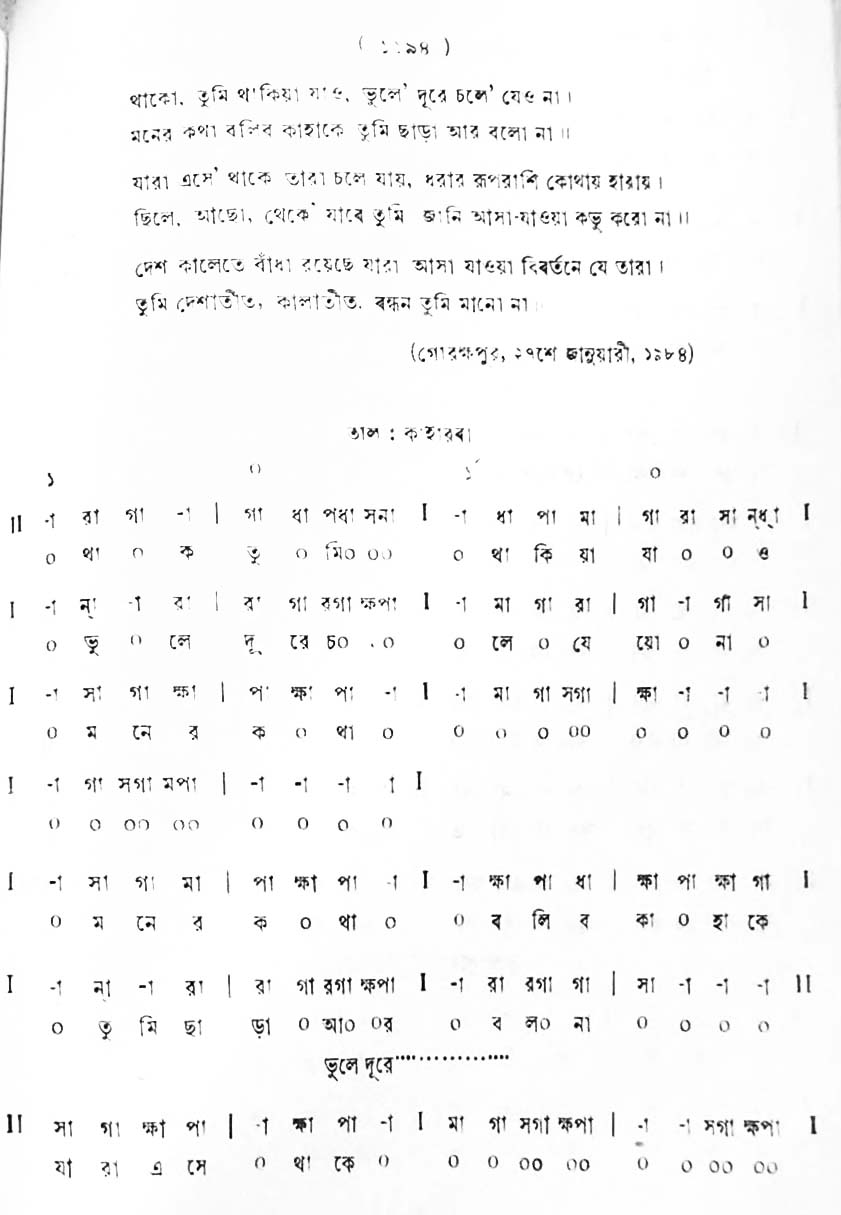 ( ১১৯৪ )
থাকো, তুমি থাকিয়া যাও, ভুলে' দূরে চলে' যেও না ।
মনের কথা বলিব কাহাকে তুমি ছাড়া আর বলো না ॥
যারা এসে' থাকে তারা চলে যায়, ধরার রূপরাশি কোথায় হারায় ।
ছিলে, আছো, থেকে' যাবে তুমি জানি আসা-যাওয়া কভু করো না ॥
দেশ কালেতে বাঁধা রয়েছে যারা আসা যাওয়া বিবর্তনে যে তারা ।
তুমি দেশাতীত, কালাতীত, বন্ধন তুমি মানো না ।
(গোরক্ষপুর, ২৭শে জানুয়ারী, ১৯৮৪)
তাল : কাহারবা
১ ০ ১´ ০
II -া রা গা -া | গা ধা পধা সনা I -া ধা পা মা | গা রা সা ন্ধ্া I
০ থা ০ ক তু ০ মি০ ০০ ০ থা কি য়া যা ০ ০ ও
I -া ন্া -া রা | রা গা রগা ক্ষপা I -া মা গা রা | গা -া র্গা সা I
০ ভু ০ লে দূ রে চ০ ০০ ০ লে ০ যে য়ো ০ না ০
I -া সা গা ক্ষা | পা ক্ষা পা -া I -া মা গা সগা | ক্ষা -া -া -া I
০ ম নে র ক ০ থা ০ ০ ০ ০ ০০ ০ ০ ০ ০
I -া গা সগা মপা | -া -া -া -া I
০ ০ ০০ ০০ ০ ০ ০ ০
I -া সা গা মা | পা ক্ষা পা -া I -া ক্ষা পা ধা | ক্ষা পা ক্ষা গা I
০ ম নে র ক ০ থা ০ ০ ব লি ব কা ০ হা কে
I -া ন্া -া রা | রা গা রগা ক্ষপা I -া রা রগা গা | সা -া -া -া II
০ তু মি ছা ড়া ০ আ০ ০র ০ ব ল০ না ০ ০ ০ ০
ভুলে দূরে··················
II সা গা ক্ষা পা | -া ক্ষা পা -া I মা গা সগা ক্ষপা | -া -া সগা ক্ষপা I
যা রা এ সে ০ থা কে ০ ০ ০ ০০ ০০ ০ ০ ০০ ০০